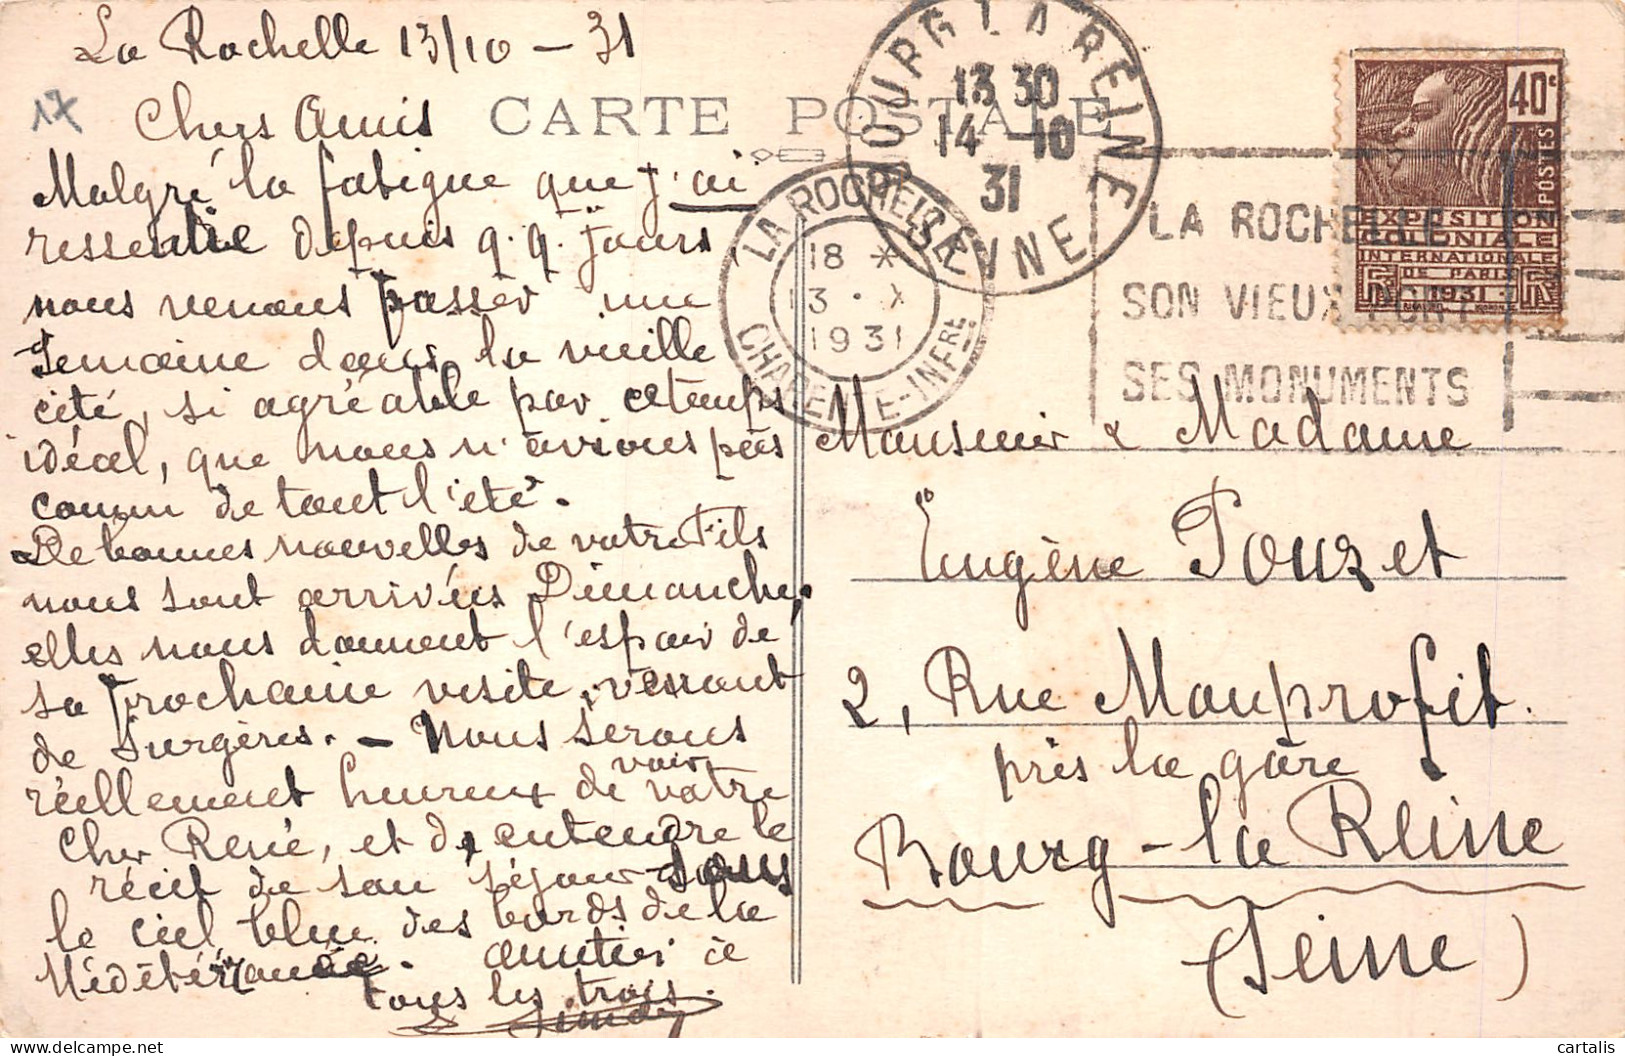 La Rochelle 13/10 – 31
17
CARTE POSTALE
Chers Amis
Malgré la fatigue que j'ai
ressentie depuis q.q. jours,
nous venons passer une
semaine dans la vieille
cité, si agréable par ce temps
idéal, que nous n'avions pas
connu de tout l'été.
De bonnes nouvelles de votre Fils
nous sont arrivées Dimanche,
elles nous donnent l'espoir de
sa prochaine visite, venant
de Surgères. – Nous serons
réellement heureux de voir votre
Cher René, et de entendre le
récit de son séjour sous
le ciel bleu des bords de la
Méditérranée. amitiés à
tous les trois.
BOURG LA REINE
13 30
14 -10
31
SEINE
LA ROCHELLE
18 *
13 · X
1931
CHARENTE-INFRE
LA ROCHELLE
SON VIEUX PORT
SES MONUMENTS
40c
POSTES
EXPOSITION
COLONIALE
INTERNATIONALE
DE PARIS
RF 1931 RF
Monsieur & Madame
Eugène Pouzet
2, Rue Mauprofit.
près la gare
Bourg-la Reine
(Seine)
cartalis